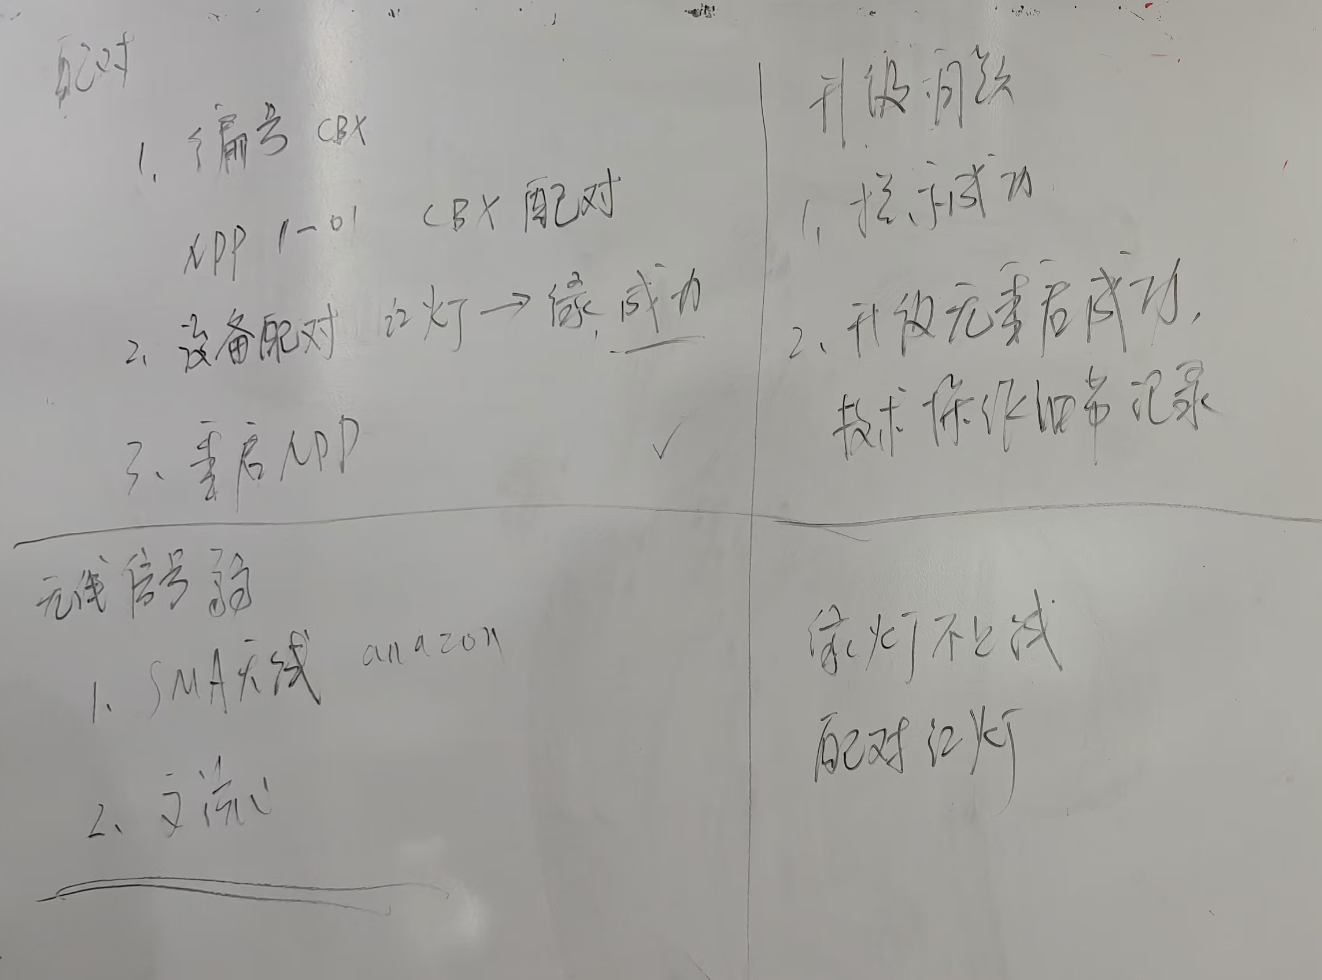 配对
1. 编号 CBX
APP 1-01 CBX 配对
2、设备配对 红灯→绿, 成功
3、重启APP
升级问题
1、提示成功
2、升级无重启成功,
技术操作 记录
无线信号弱
1. SMA天线 amazon
2、交流
绿灯不上线
配对红灯